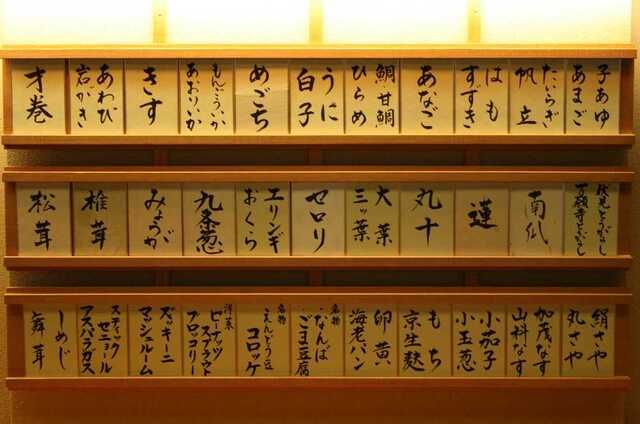 子あゆ
あまご
たいらぎ
帆立
はも
すずき
あなご
鯛甘鯛
ひらめ
うに
白子
めごち
もんごういか
あおりいか
きす
あわび
岩がき
才巻
伏見とうがらし
万願寺とうがらし
南瓜
蓮
丸十
大葉
三ッ葉
セロリ
エリンギ
おくら
九条葱
みょうが
椎茸
松茸
絹さや
丸さや
加茂なす
山科なす
小茄子
小玉葱
もち
京生麩
卵黄
海老パン
名物
なんば
ごま豆腐
名物
えんどう豆
コロッケ
洋素
ピーナッツ
スプラウト
ブロッコリー
ズッキーニ
マッシュルーム
スティック
セニョール
アスパラガス
しめじ
舞茸